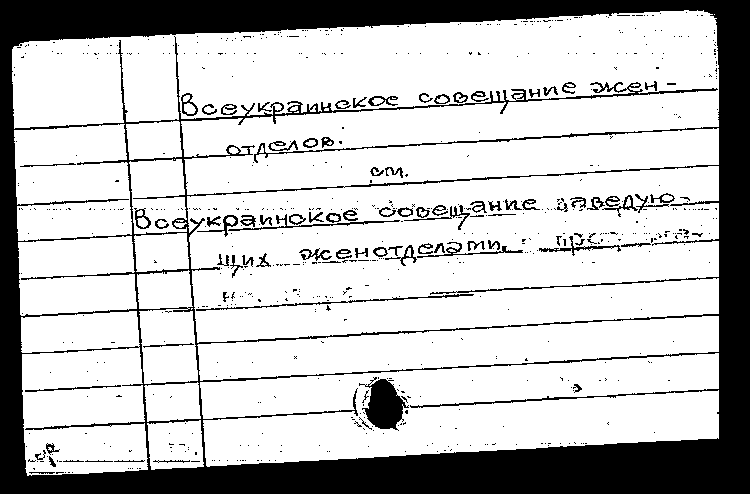 Всеукраинское совещание жен-
отделов.
см.
Всеукраинское совещание заведую-
щих женотделами.
ор